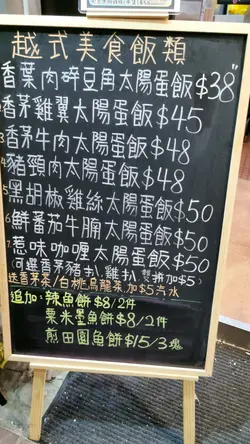 越式美食飯類
香葉肉碎豆角太陽蛋飯$38"
香茅雞翼太陽蛋飯$45
3香茅牛肉太陽蛋飯$48
4豬頸肉太陽蛋飯$48
5黑胡椒雞絲太陽蛋飯$50
6鮮蕃茄牛腩太陽蛋飯$50
7.惹味咖喱太陽蛋飯$50
(可選香茅豬扒,雞扒 加$5)
送香茅茶/白桃烏龍茶加$5汽水
追加:辣魚餅$8/2件
粟米墨魚餅$8/2件
煎田園魚餅$15/3塊